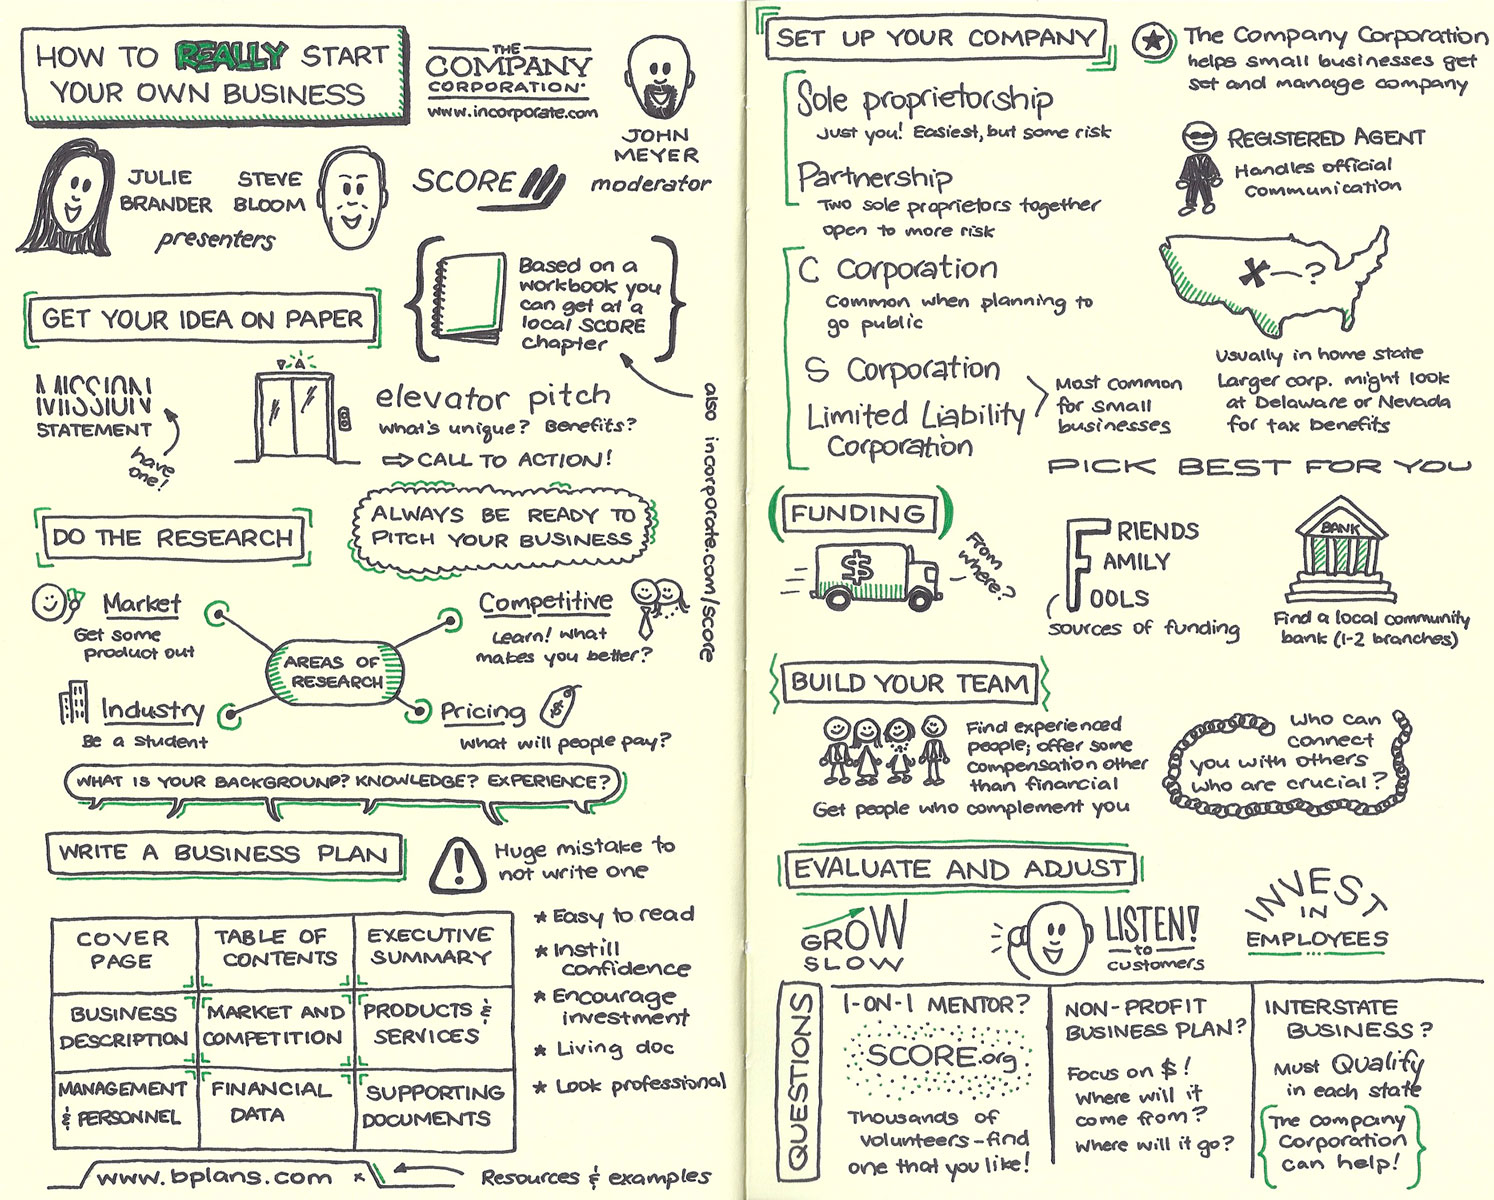 HOW TO REALLY START
YOUR OWN BUSINESS
THE
COMPANY
CORPORATION
www.incorporate.com
JOHN
MEYER
moderator
JULIE
BRANDER
STEVE
BLOOM
presenters
SCORE
Based on a
workbook you
can get at a
local SCORE
chapter
also incorporate.com/score
GET YOUR IDEA ON PAPER
MISSION
STATEMENT
have
one!
elevator pitch
what's unique? Benefits?
⇒ CALL TO ACTION!
ALWAYS BE READY TO
PITCH YOUR BUSINESS
DO THE RESEARCH
AREAS OF
RESEARCH
Market
Get some
product out
Competitive
Learn! What
makes you better?
Industry
Be a student
Pricing
$
What will people pay?
WHAT IS YOUR BACKGROUND? KNOWLEDGE? EXPERIENCE?
WRITE A BUSINESS PLAN
!
Huge mistake to
not write one
COVER
PAGE
TABLE OF
CONTENTS
EXECUTIVE
SUMMARY
BUSINESS
DESCRIPTION
MARKET AND
COMPETITION
PRODUCTS &
SERVICES
MANAGEMENT
& PERSONNEL
FINANCIAL
DATA
SUPPORTING
DOCUMENTS
* Easy to read
* Instill
confidence
* Encourage
investment
* Living doc
* Look professional
www.bplans.com x
Resources & examples
SET UP YOUR COMPANY
Sole proprietorship
Just you! Easiest, but some risk
Partnership
Two sole proprietors together
open to more risk
C Corporation
Common when planning to
go public
S Corporation
Limited Liability
Corporation
Most common
for small
businesses
The Company Corporation
helps small businesses get
set and manage company
REGISTERED AGENT
Handles official
communication
X ?
Usually in home state
Larger corp. might look
at Delaware or Nevada
for tax benefits
PICK BEST FOR YOU
FUNDING
$
From
where?
FRIENDS
FAMILY
FOOLS
sources of funding
BANK
Find a local community
bank (1-2 branches)
BUILD YOUR TEAM
Find experienced
people; offer some
compensation other
than financial
Get people who complement you
Who can
connect
you with others
who are crucial?
EVALUATE AND ADJUST
GROW
SLOW
LISTEN!
to
customers
INVEST
IN
EMPLOYEES
QUESTIONS
1-ON-1 MENTOR?
SCORE.org
Thousands of
volunteers - find
one that you like!
NON-PROFIT
BUSINESS PLAN?
Focus on $!
Where will it
come from?
Where will it go?
INTERSTATE
BUSINESS?
Must Qualify
in each state
The Company
Corporation
can help!